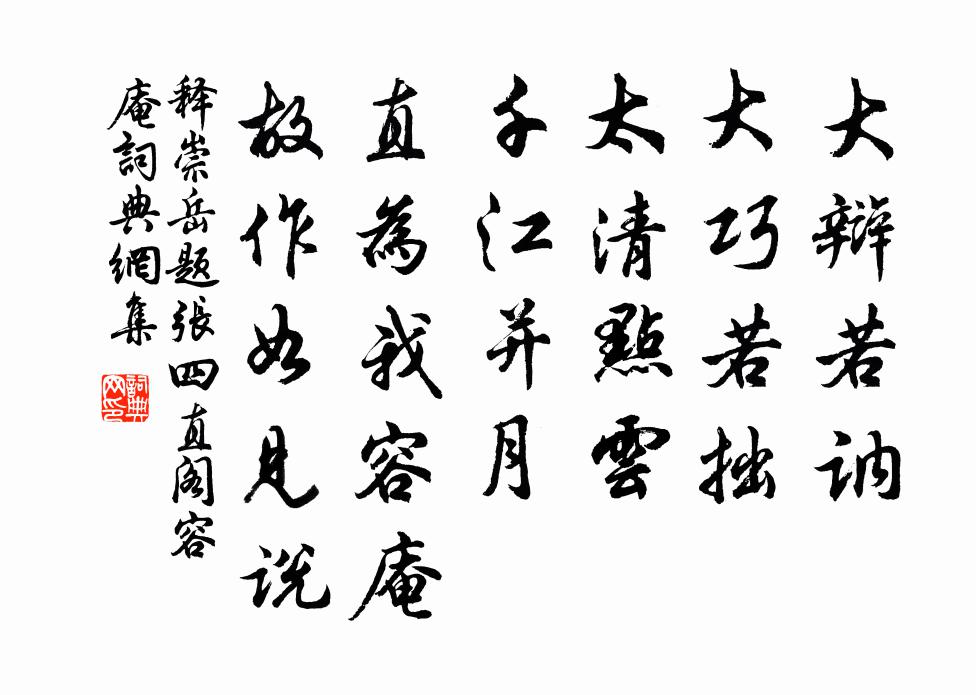 大辯若訥
大巧若拙
太清點雲
千江并月
直為我容庵
故作如是說
释崇岳題張四直阁容
庵詞典網集
詞典网印